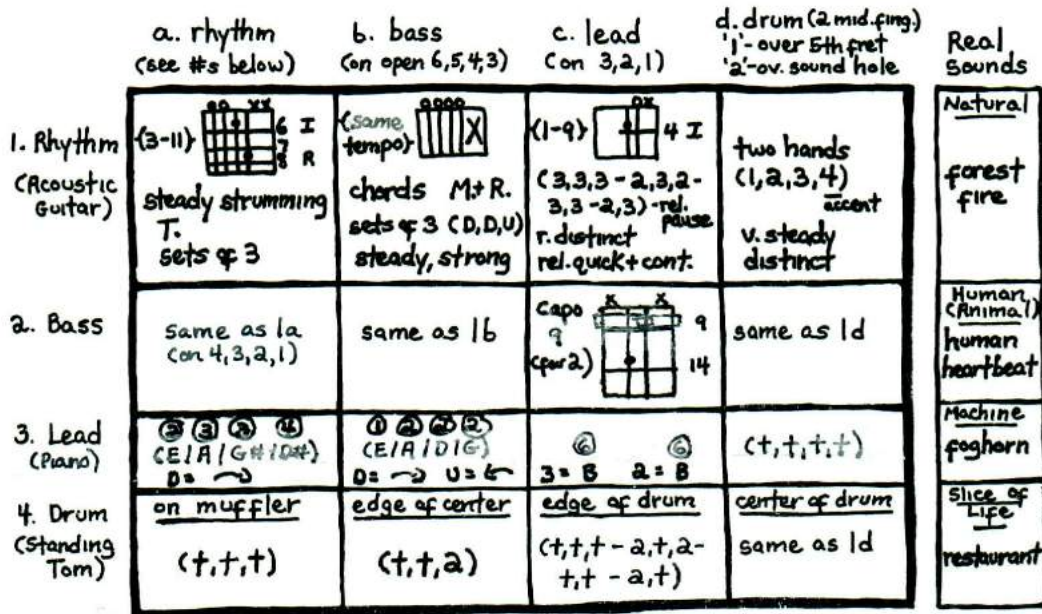 a. rhythm
(see #s below)
b. bass
(on open 6,5,4,3)
c. lead
(on 3,2,1)
d. drum (2 mid.fing.)
'1'- over 5th fret
'2'-ov. sound hole
Real
Sounds
1. Rhythm
(Acoustic
Guitar)
{3-11}
oo xx
6 I
7
8 R
steady strumming
T.
sets of 3
{same
tempo}
oooo
X
chords M.+R.
sets of 3 (D,D,U)
steady, strong
{1-9}
ox
4 I
(3,3,3-2,3,2-
3,3-2,3)-rel.
pause
r. distinct
rel. quick + cont.
two hands
(1,2,3,4)
accent
v. steady
distinct
Natural
forest
fire
2. Bass
same as 1a
(on 4,3,2,1)
same as 1b
Capo
9
(for 2)
x x
9
14
same as 1d
Human
(Animal)
human
heartbeat
3. Lead
(Piano)
(E/A/G#/D#)
D= →
① ② ② ②
(E/A/D/G)
D= → U= ←
⑥ ⑥
3 = B 2 = B
(t,t,t,t)
Machine
foghorn
4. Drum
(Standing
Tom)
on muffler
(t,t,t)
edge of center
(t,t,2)
edge of drum
(t,t,t-2,t,2-
t,t-2,t)
center of drum
same as 1d
Slice of
Life
restaurant